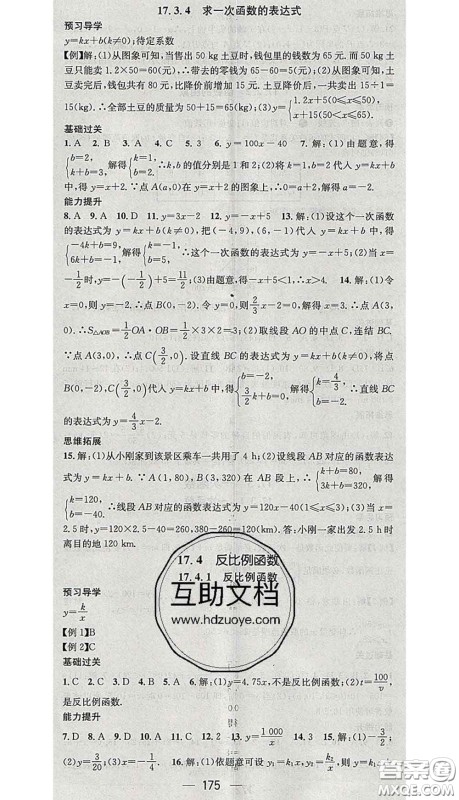 17.3.4 求一次函数的表达式
预习导学
y=kx+b(k≠0);待定系数
【例】解:(1)从图象可知,当售出 50 kg 土豆时,钱包里的钱数为 65 元. 而 50 kg 土
豆只能卖 1.2×50=60(元),∴带去的零钱为 65-60=5(元);(2)从图象可知,土
豆卖完后,钱包共有 80 元,比降价前增加了 15 元,∴降价后一共卖出 15÷1=
15(kg).∴全部土豆的质量为 50+15=65(kg);(3)y={1.2x+5(0≤x≤50),
15+x(50<x≤65).
基础过关
1. A 2. B 3. A 4. C 5. 3 6. y=100x-40 7. 解:(1)由题意,得
{b=2, k+b=3, 解得{k=1, b=2. ∴k,b 的值分别是 1 和 2;(2)将 k=1,b=2 代入 y=kx+b
中,得 y=x+2. ∵点 A(a,0)在 y=x+2 的图象上,∴0=a+2,解得 a=-2.
能力提升
8. A 9. A 10. D 11. y=3x-2 12. y=-x+5 13. 解:(1)设这个一次函数
的表达式为 y=kx+b(k≠0),把(-4,9),(6,-1)代入 y=kx+b 中,得
{-4k+b=9, 6k+b=-1, 解得{k=-1, b=5. ∴这个函数的表达式为 y=-x+5;(2)当 x=
-1/2时,y=-(-1/2)+5=11/2;(3)由题意,得-x+5<1,∴x>4. 14. 解:(1)令 x
=0,则 y=-2. ∴点 B(0,-2). 令 y=0,则 2/3x-2=0,解得 x=3. ∴点 A(3,
0). ∴S△AOB=1/2OA·OB=1/2×3×2=3;(2)取线段 AO 的中点 C,连结 BC.
∵点 A(3,0),∴点 C(3/2,0). 设直线 BC 的表达式为 y=kx+b(k≠0),将点
B(0,-2),C(3/2,0)代入 y=kx+b 中,得{b=-2, 3/2k+b=0, 解得{k=4/3, b=-2. ∴直线 BC
的表达式为 y=4/3x-2.
思维拓展
15. 解:(1)从小刚家到该景区乘车一共用了 4 h;(2)设线段 AB 对应的函数表达
式为 y=kx+b. ∵A(1,80),B(3,320)在 AB 上,∴{k+b=80, 3k+b=320, 解得
{k=120, b=-40. ∴线段 AB 对应的函数表达式为 y=120x-40(1≤x≤3);(3)当 x=
2.5 时,y=120×2.5-40=260,380-260=120(km). 答:小刚一家出发 2.5 h 时
离目的地 120 km.
17.4 反比例函数
17.4.1 反比例函数
互助文档
www.hdzuoye.com
预习导学
y=k/x
【例 1】B
【例 2】C
基础过关
1. C 2. C 3. A 4. B 5. C 6. 解:(1)y=4.75x,不是反比例函数;(2)t=100/v,
是反比例函数.
能力提升
7. D 8. A 9. A 10. D 11. 2 12. 2 13. y=1 000/x 14. 4 15. 解:(1)-3/2;
(2)y=3/20;(3)x=-1/4. 16. 解:(1)依题意可设 y₁=k₁x,y₂=k₂/x,则 y=k₁x-
175
答案圈
MXQE.COM